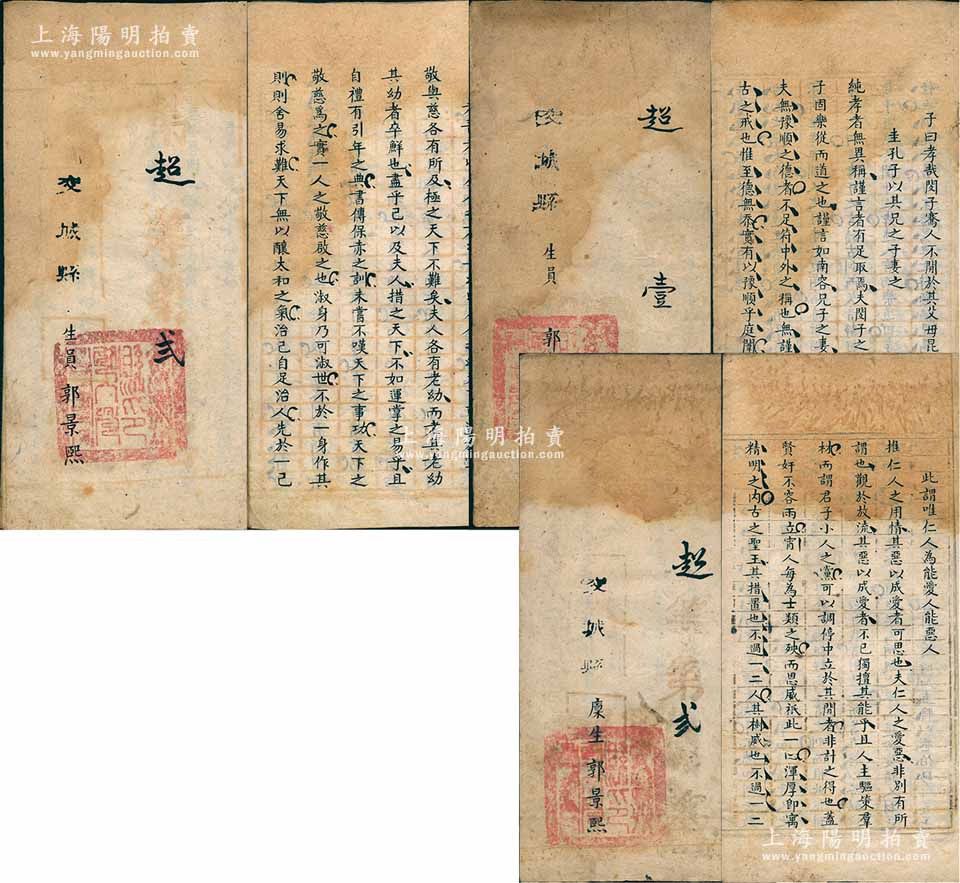 上海陽明拍賣
www.yangmingauction.com
超
壹
縣 生員 郭
子曰孝哉閔子騫人不間於其父母昆
圭孔子以其兄之子妻之
純孝者無異稱謹言者有足取焉夫閔子之
子固樂從而道之也謹言如南容兄子之妻
夫無豫順之德者不足符中外之稱也無謹
古之戒也惟至德無忝實有以豫順乎庭闈
超
弍
城縣 生員 郭景熙
敬與慈各有所及極之天下不難矣夫人各有老幼而老其老幼
其幼者卒鮮也盍乎己以及夫人措之天下不如運掌之易乎且
自禮有引年之典書傳保赤之訓未嘗不嘆天下之事功天下之
敬慈為之實一人之敬慈啟之也淑身乃可淑世不於一身作其
則則舍易求難天下無以釀太和之氣治己自足治人先於一己
超
弍
城縣 廩生 郭景熙
此謂唯仁人為能愛人能惡人
推仁人之用情其惡以成愛者可思也夫仁人之愛惡非別有所
謂也觀於放流其惡以成愛者不已獨擅其能乎且人主驅策群
材而謂君子小人之黨可以調停中立於其間者非計之得也蓋
賢奸不容兩立宵人每為士類之殃而恩威祇此一心渾厚即寓
精明之內古之聖王其措置也不過一二人其樹威也不過一二
上海陽明拍賣
www.yangmingauction.com